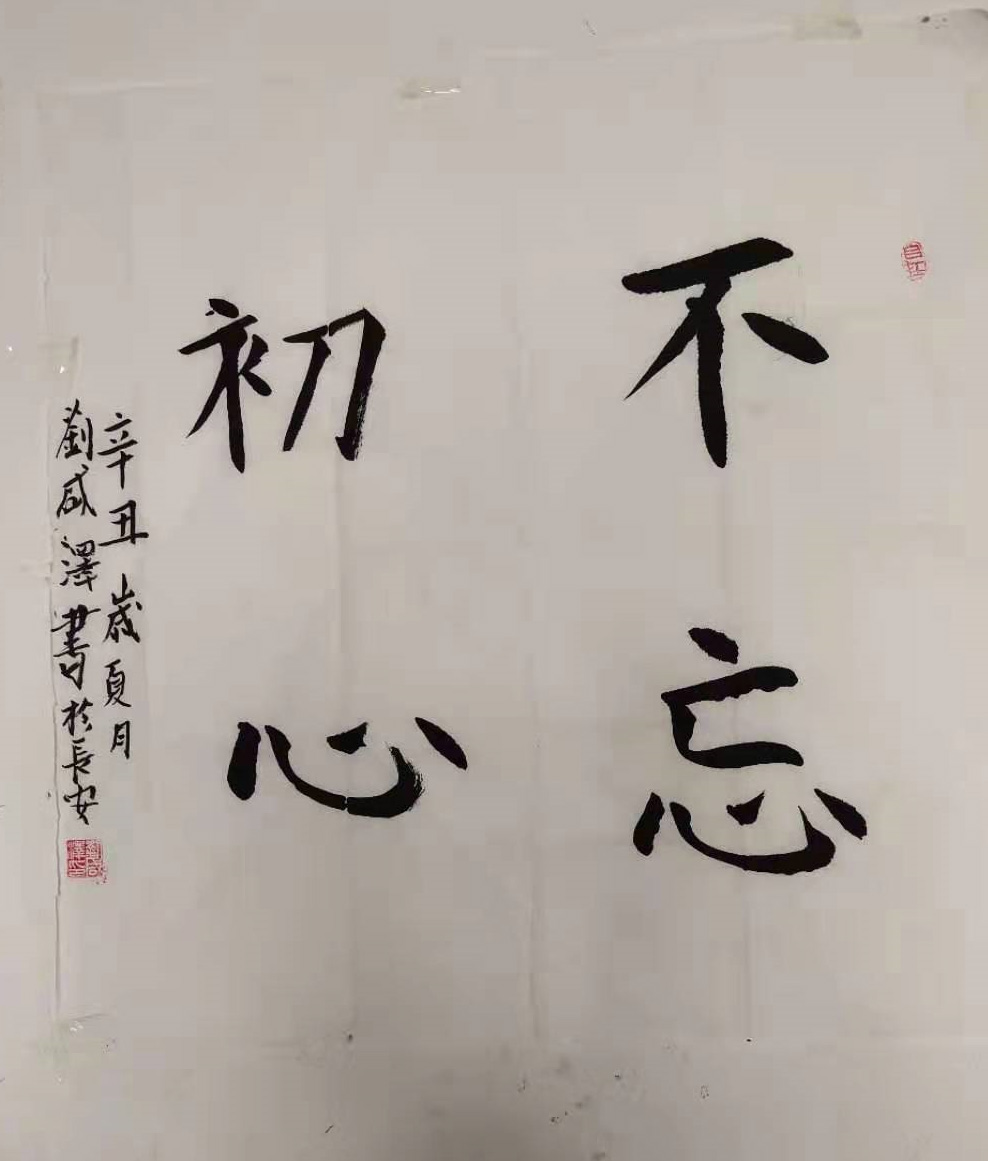 不忘
初心
辛丑歲夏月
劉咸澤書於長安